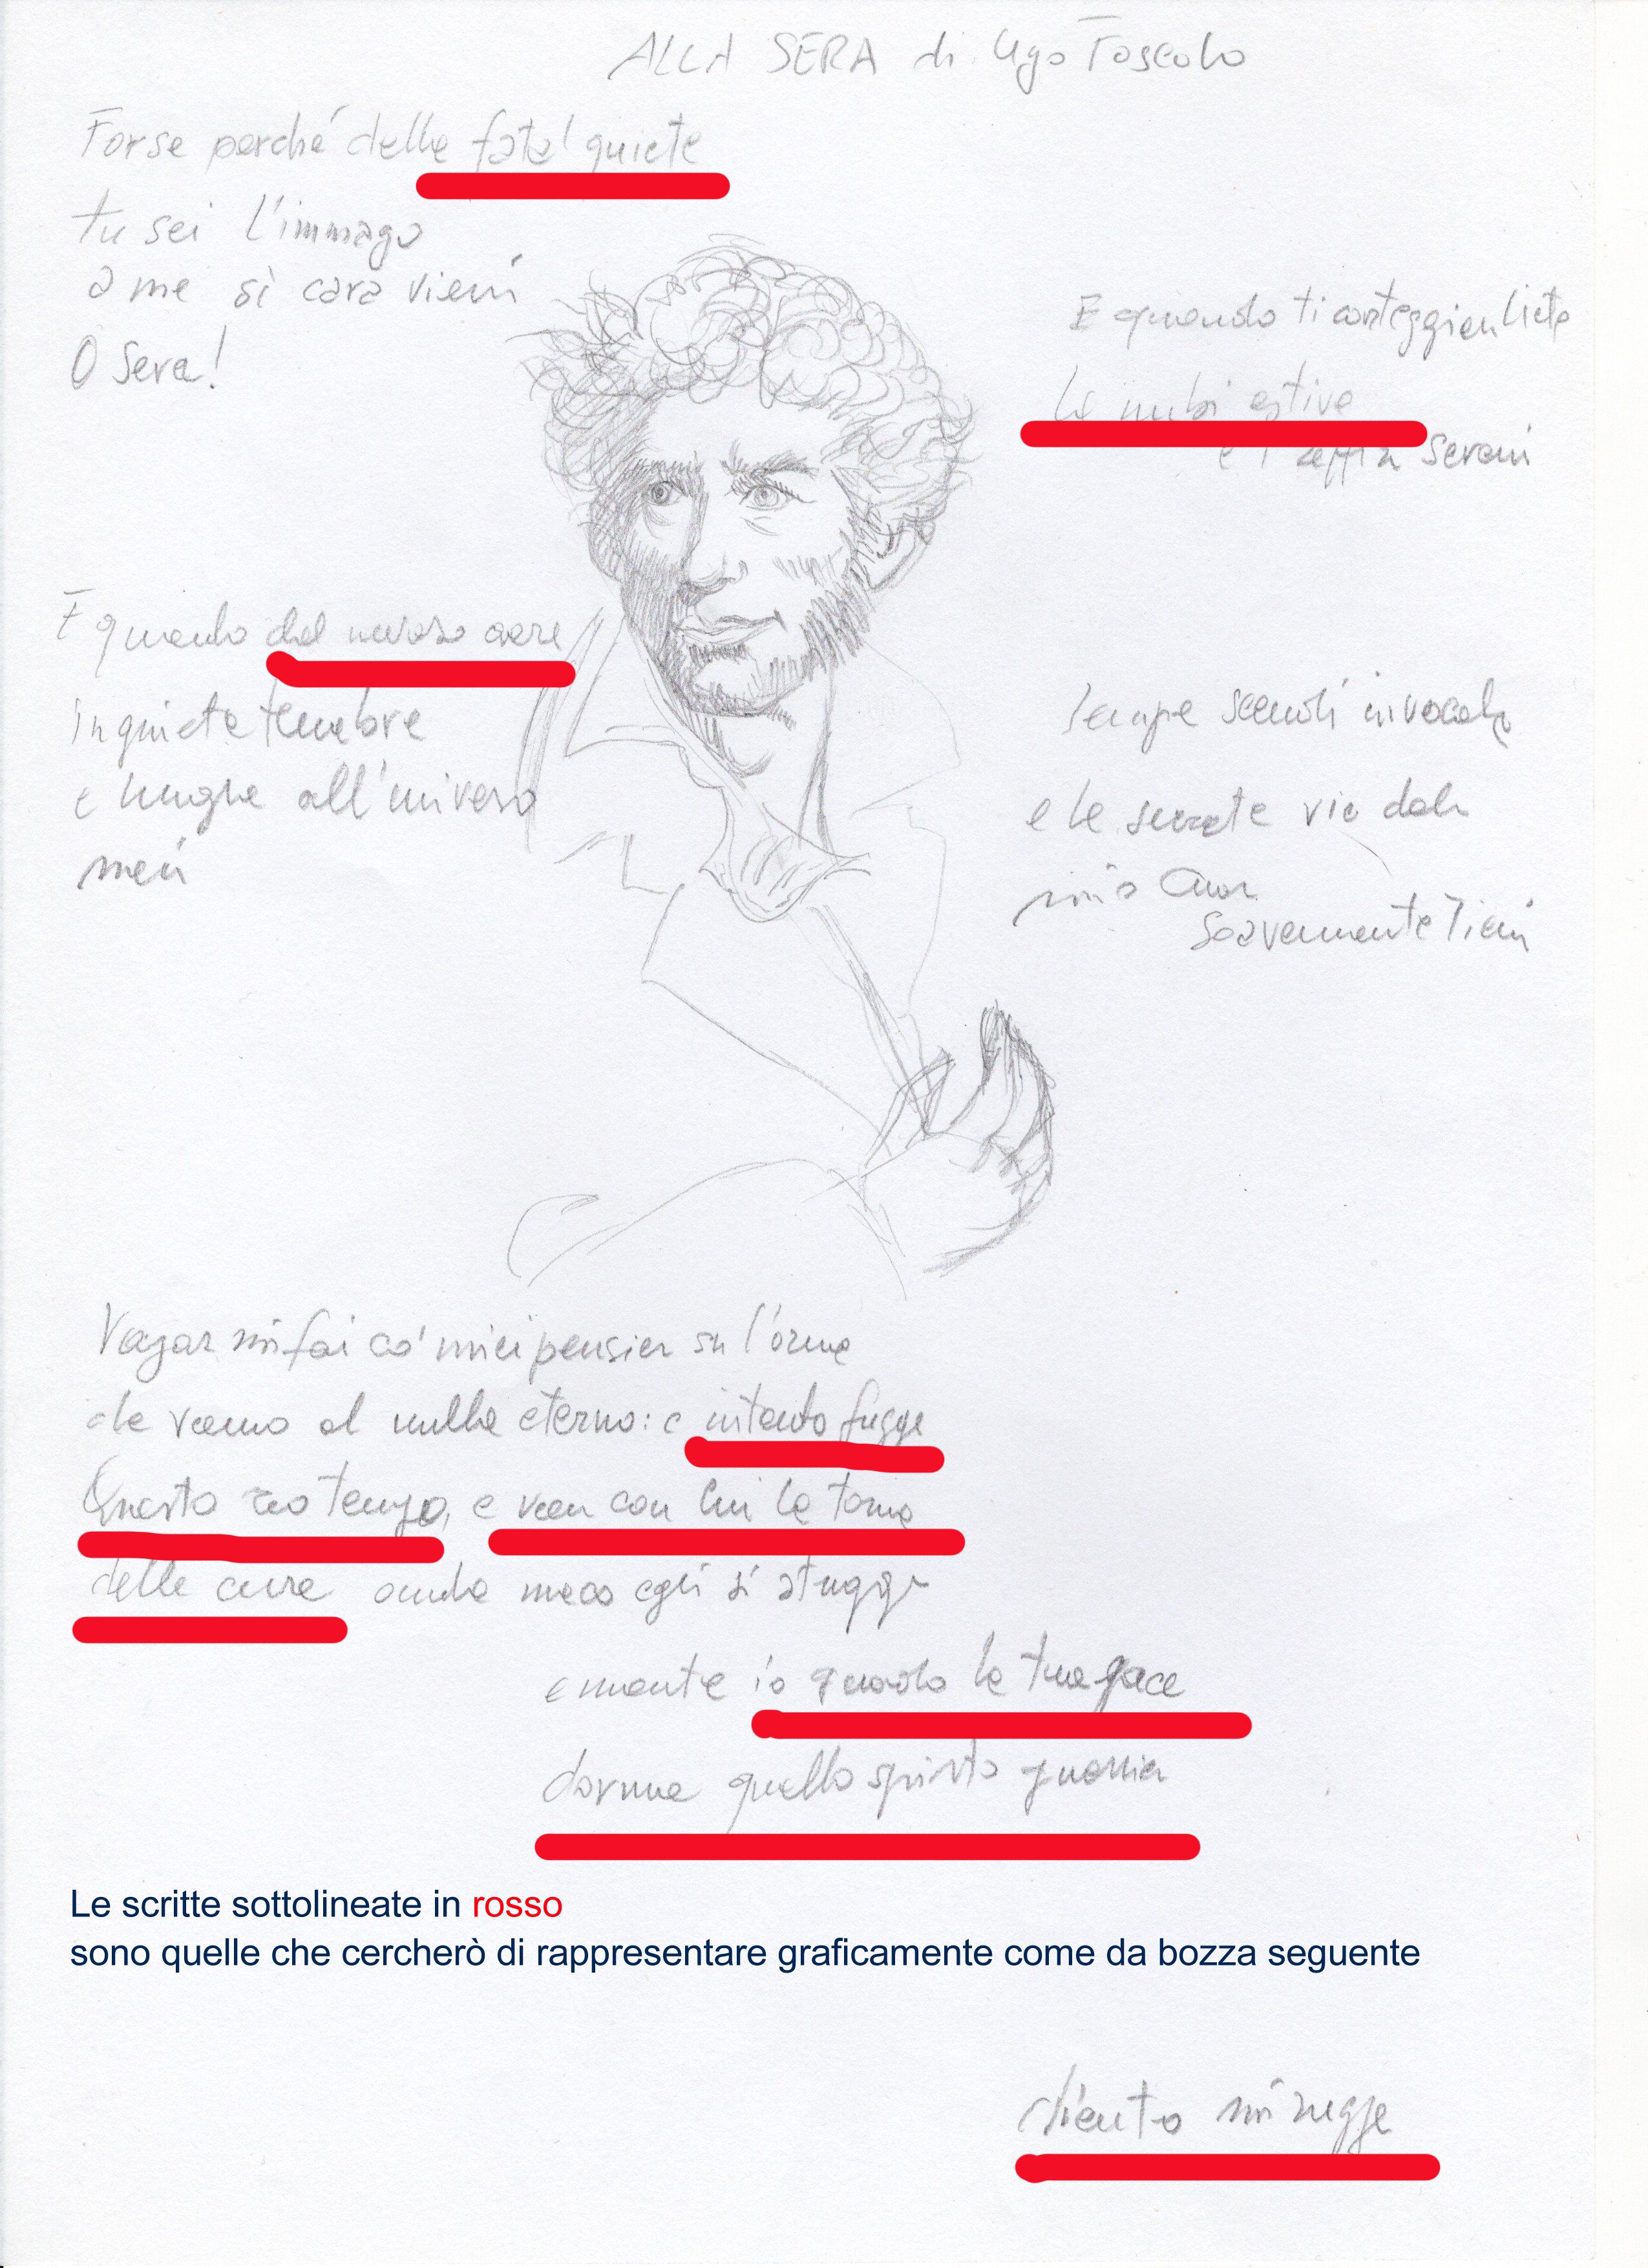 ALLA SERA di Ugo Foscolo
Forse perché della fatal quiete
tu sei l'immago
a me sì cara vieni
O Sera!
E quando ti corteggian liete
le nubi estive
e i zeffiri sereni
E quando dal nevoso aere
inquiete tenebre
e lunghe all'universo
meni
sempre scendi invocata
e le secrete vie del
mio cuor
soavemente tieni
Vagar mi fai co' miei pensier su l'orme
che vanno al nulla eterno: e intanto fugge
Questo reo tempo, e van con lui le torme
delle cure onde meco egli si strugge
e mentre io guardo la tua pace
dorme quello spirto guerrier
Le scritte sottolineate in rosso
sono quelle che cercherò di rappresentare graficamente come da bozza seguente
ch'entro mi rugge